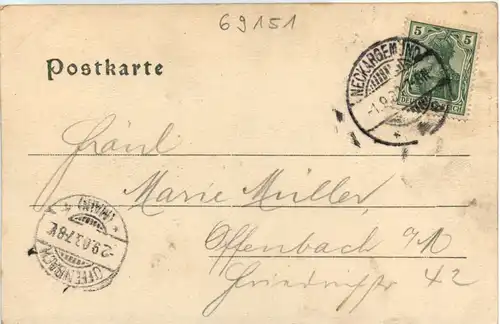 69151
Postkarte
5 5
NECKARGEMÜND
-1.9.
Fräul
Marie Müller
Offenbach a/M
Friedrichstr 42
OFFENBACH
-2.9.03.7-8V.
* (MAIN) *